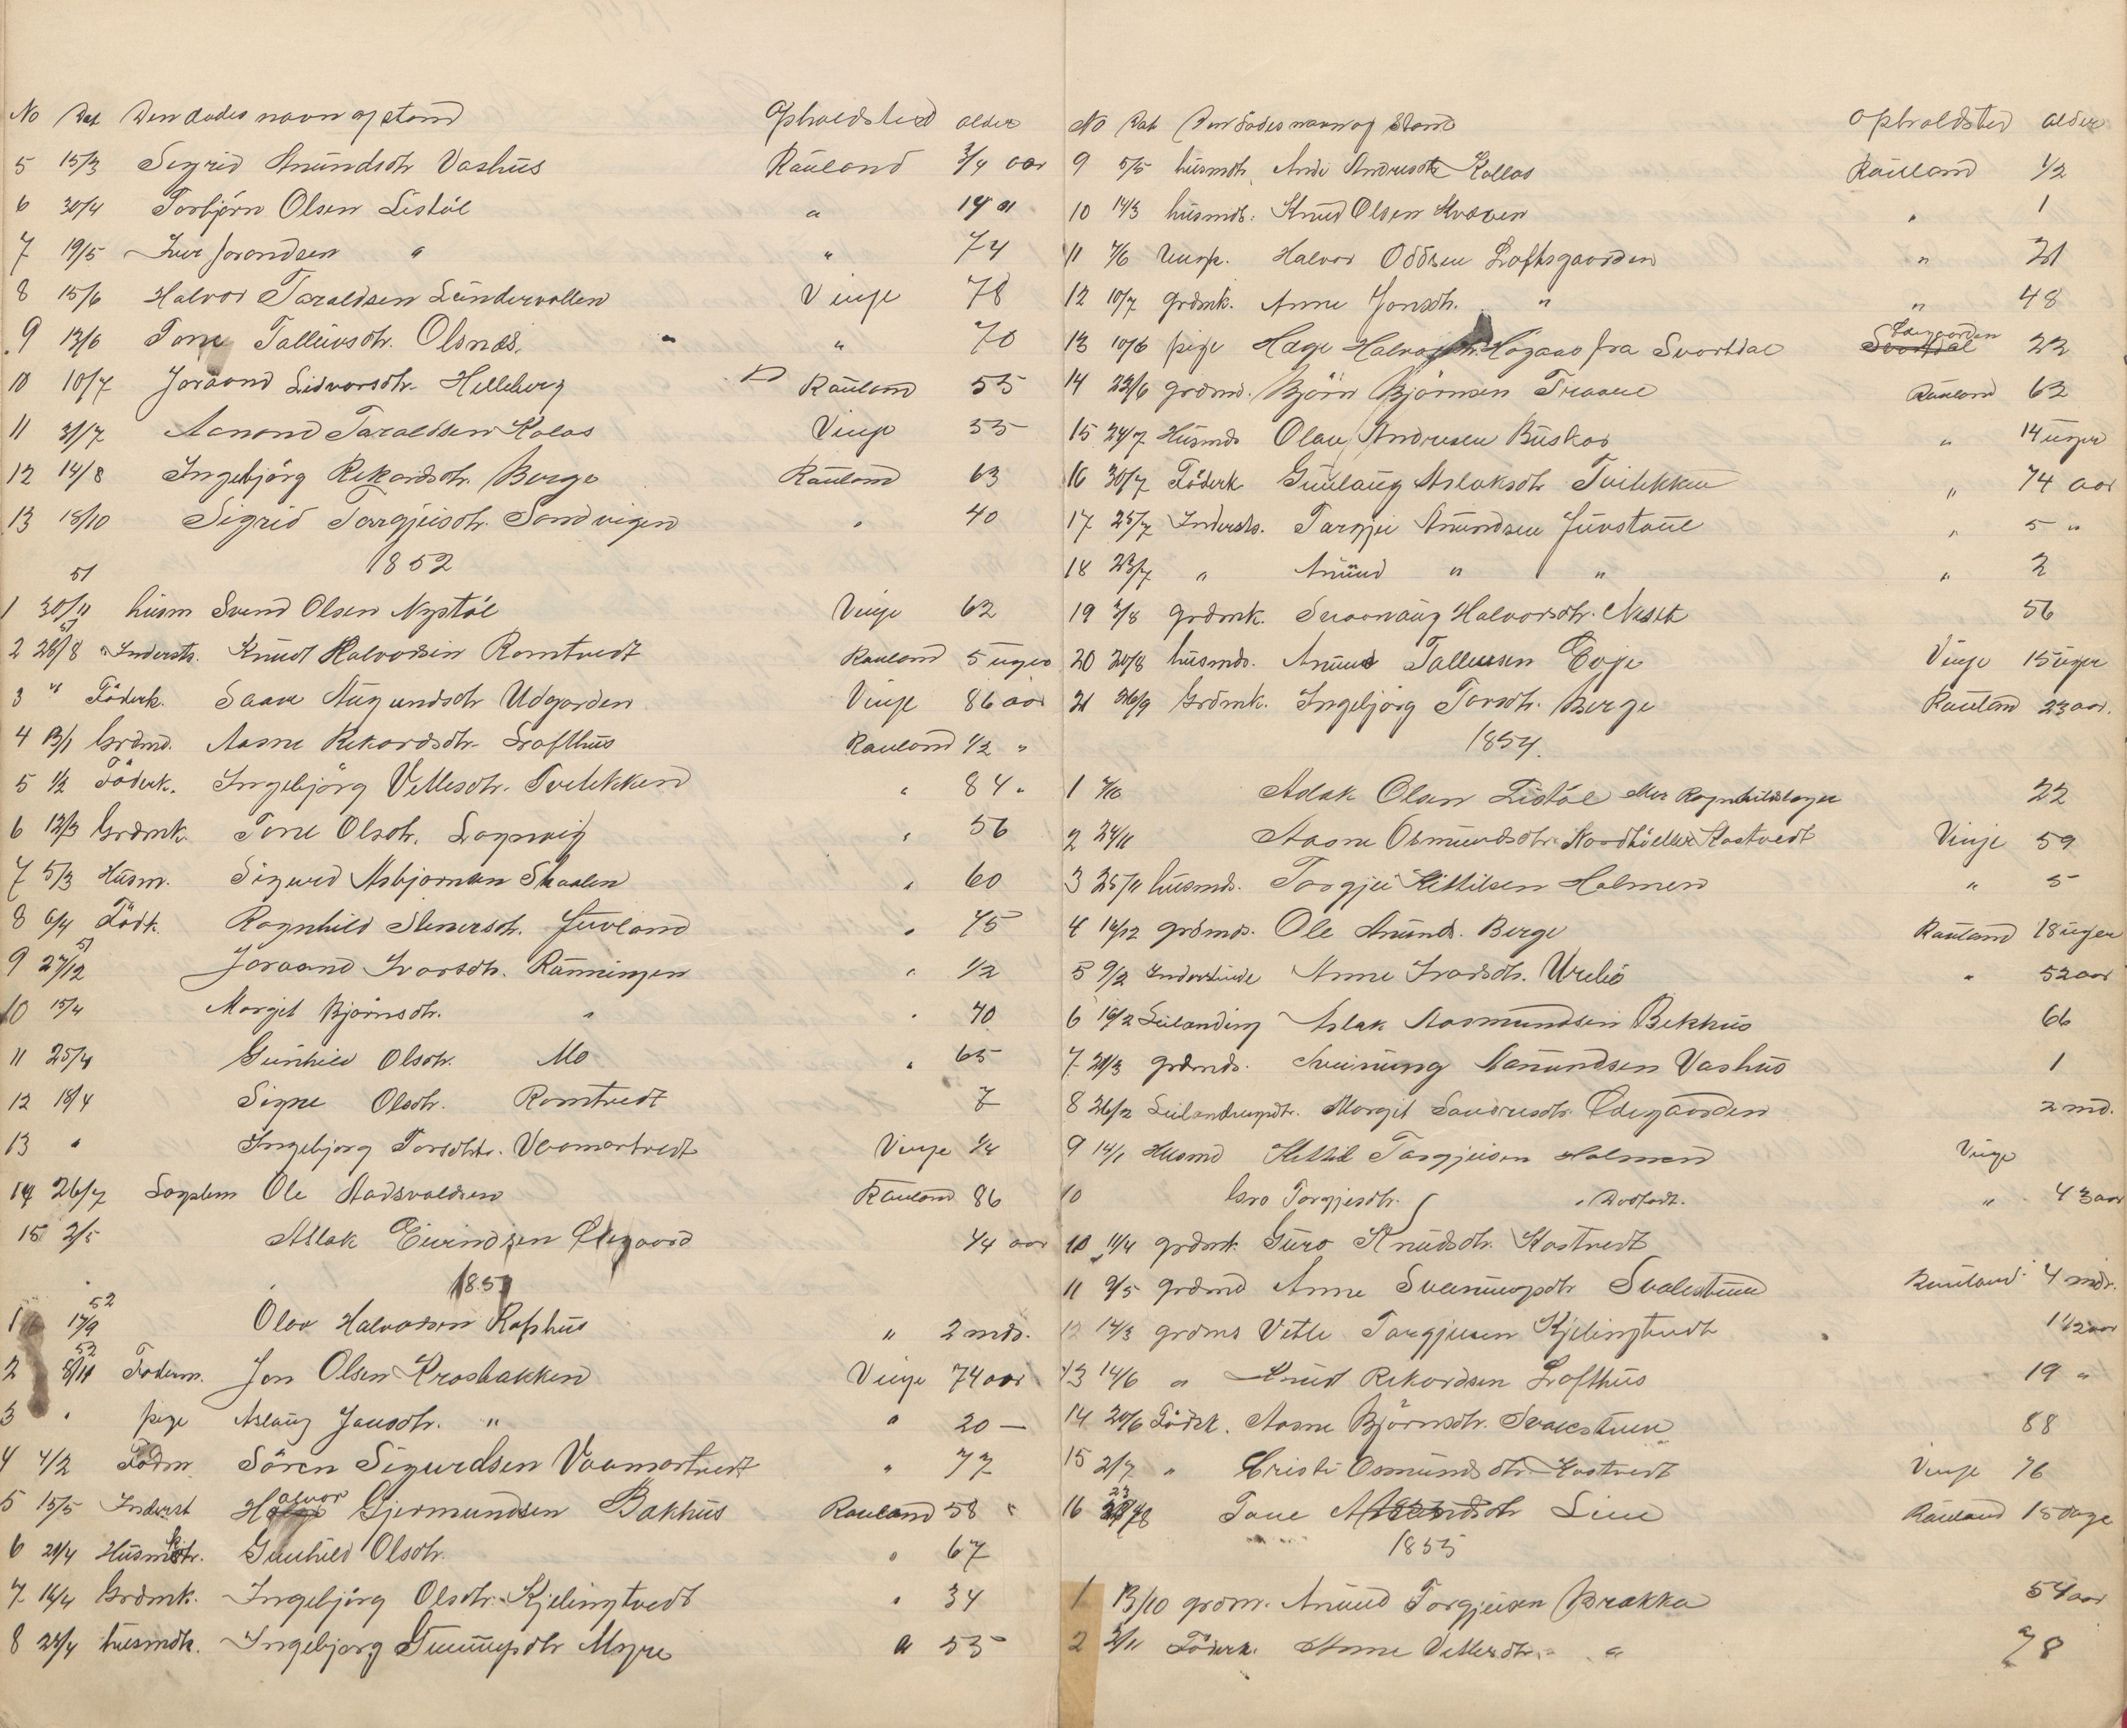 No Dat Den dødes navn og stand Opholdsted alder
5 15/3 Sigrid Anundsdtr Vashus Rauland 3/4 aar
6 30/4 Torbjörn Olsen Listöl " 14 "
7 19/5 Iver Jorandsen " " 74
8 15/6 Halvor Taraldsen Lundervollen Vinje 78
9 13/6 Tone Tallivsdtr. Olsnæs " 70
10 10/7 Joraand Lidvorsdtr. Helleberg Rauland 55
11 31/7 Aanond Taraldsen Kolos Vinje 55
12 14/8 Ingebjörg Rikardsdtr. Berge Rauland 63
13 18/10 Sigrid Torgjeisdtr. Sandvigen " 40
1852
1 30/11 51 husm Svend Olsen Nystöl Vinje 62
2 28/8 51 Indersts. Knudt Halvorsen Romtvedt Rauland 5 uger
3 " Föderk. Saave Augundsdtr Udgarden Vinje 86 aar
4 13/1 Grdmd. Aasne Rikardsdtr. Lofthus Rauland 1/2 "
5 1/2 Föderk. Ingebjörg Vetlesdtr. Tvitekken " 84 "
6 12/3 Grdmk. Tone Olsdtr. Lognvig " 56
7 5/3 Husm. Sigurd Asbjornsen Skaalen " 60
8 6/4 Födk. Ragnhild Stenersdtr. Juvland " 75
9 27/12 51 Joraand Ivarsdtr. Rönningen " 1/2
10 15/4 Margit Björnsdtr. " " 40
11 25/4 Gunhild Olsdtr. Mo " 65
12 18/4 Signe Olsdtr. Romtvedt 7
13 " Ingebjorg Torsdtr. Vaamartvedt Vinje 1/4
14 26/7 Lagslem Ole Aadsvaldsen Rauland 86
15 2/5 Aslak Eivindsen Ødegaard 44 aar
1853
1 17/9 52 Olav Halvorsen Rophus " 2 mds.
2 8/11 52 Föderm. Jon Olsen Krosbakken Vinje 74 aar
3 " pige Aslaug Jonsdtr. " " 20 —
4 4/2 Födm Sören Sigurdsen Vaamartvedt " 77
5 15/5 Inderst Halvor Gjermundsen Bakhus Rauland 58 "
6 21/4 Husmktr. Gunhild Olsdtr. " 67
7 16/4 Grdmk. Ingebjörg Olsdtr. Kjelingtvedt " 34
8 23/4 husmdtr. Ingebjorg Myre " 53
No Dat Den dødes navn og stand opholdsted alder
9 5/5 husmdtr. Andresdtr Kollos Rauland 1/2
10 14/3 husmds. Knud Olsen Kvæven " 1
11 7/6 Halvor Oddsen Loftsgaarden " 21
12 10/7 grdmk. Anne Jonsdtr. " " 48
13 10/6 pige Hæge fra Svortdal 22
14 23/6 grdmd. Björn Björnsen Traaen Rauland 62
15 24/7 Husmds Olav Andresen Buskos " 14 uger
16 30/7 Föderk Gunlaug Aslaksdtr Tvitekken " 74 aar
17 25/7 Indersts. Targjei Anundsen Juvstaul " 5 "
18 23/7 " Anund " " " 2
19 3/8 grdmk. Halvorsdtr. Neset 56
20 20/8 husmds. Anund Tallevsen Evje Vinje 15 uger
21 26/9 Grdmk. Ingebjörg Torsdtr. Berge Rauland 23 aar.
1854.
1 7/10 Aslak Olsen Listöl eller 22
2 24/11 Aasne Osmundsdtr. Nordbö eller Kostvedt Vinje 59
3 25/11 husmds. Torgjei Kittilsen Holmen " 5
4 14/12 grdmds. Ole Anunds. Berge Rauland 18 uger
5 9/2 Inderstinde Anne Ivarsdtr. Urebö " 52 aar
6 16/2 Leilanding Aslak Aasmundsen Bekhus 66
7 21/3 grdmds. Sveinung Aanundsen Vashus 1
8 26/2 Margit Sandresdtr. Ødegaarden 2 md.
9 14/1 Husmd Kittil Torgjeisen Holmen Vinje
10 Gro Torgjeisdtr. " 43 aar
10 11/4 grdmk. Guro Knudsdtr. Kostvedt
11 9/5 grdmd Anne Sveinungsdtr Svalestuen Rauland 4 mdr.
12 14/3 grdms Vetle Torgjusen Kjelingtvedt 1 1/2 aar
13 14/6 " Knud Rikardsen Lofthus 19 "
14 20/6 Födrk. Aasne Björnsdtr. Svalestuen 88
15 2/7 " Cristi Osmundsdtr. Kostvedt Vinje 76
16 23 /8 Tone Lien Rauland 15 dage
1855
1 13/10 grdm. Anund Torgjeisen Brakka 54 aar
2 2/11 Föderk. Anne Vetlesdtr. " 78